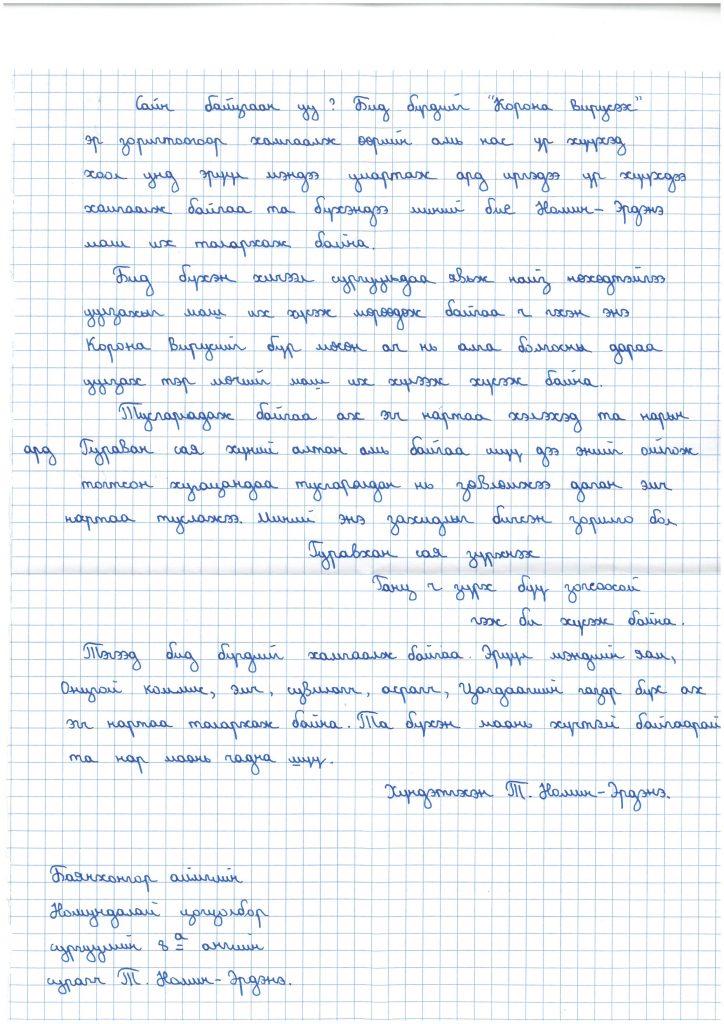 Сайн байцгаан уу? Бид бүрдийг "Корона Вирусээс"
эр зоригтойгоор хамгаалж өөрийн амь нас үр хүүхэд
хоол унд эрүүл мэндээ умартаж ард иргэдээ үр хүүхдээ
хамгаалж байгаа та бүхэндээ миний бие Номин-Эрдэнэ
маш их талархаж байна.
Бид бүхэн хичээл сургуульдаа явьж найз нөхөдтэйгээ
уулзахыг маш их хүсэж мөрөөдөж байгаа ч гхэн энэ
Корона Вирусийг бүр мөсөн ач нь алга болгосны дараа
уулзах тэр мөчийг маш их хүлээж хүсэж байна.
Тусгарладаж байгаа ах эгч нартаа хэлэхэд та нарын
ард Гураван сая хүний алтан амь байгаа шүү дээ энийг ойлгож
тогтсон хугацандаа тусгаралдан нь зөвлөмжээ даган эмч
нартаа туслажээ. Миний энэ захидлыг бичсэн зорилго бол
Гуравхан сая зүрхнээс
Ганц ч зүрх бүү зогсоосой
гэж би хүсэж байна.
Тэгээд бид бүрдийг хамгаалж байгаа. Эрүүл мэндийн яам,
Онцгой коммис, эмч, сувилагч, асрагч, Цагдаагийн газар бүх ах
эгч нартаа талархаж байна. Та бүхэн маань хүчтэй байгаарай
та нар маань чадна шүү.
Хүндэтгэсэн Т. Номин-Эрдэнэ.
Баянхонгор аймгийн
Номундалай цогцолбор
сургуулийн 8а ангийн
сурагч Т. Номин-Эрдэнэ.